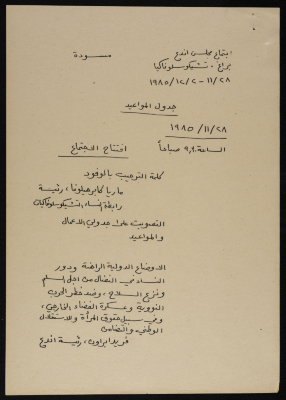 اجتماع مجلس اندع
مسودة
براغ - تشيكوسلوفاكيا
١١/٢٨ - ١٩٨٥/١٢/٢
جدول المواعيد
١٩٨٥/١١/٢٨
الساعة ٩,٠٠ صباحاً افتتاح الاجتماع
كلمة الترحيب بالوفود
ماريا كابرهيلوفا، رئيسة
رابطة النساء التشيكوسلوفاكيات
التصويت على جدولي الاعمال
والمواعيد
الاوضاع الدولية الراهنة ودور
النساء في النضال من اجل السلم
ونزع السلاح، وضد خطر الحرب
النووية وعسكرة الفضاء الخارجي،
وفي سبيل حقوق المرأة والاستقلال
الوطني والتضامن
فريدا براون، رئيسة اندع